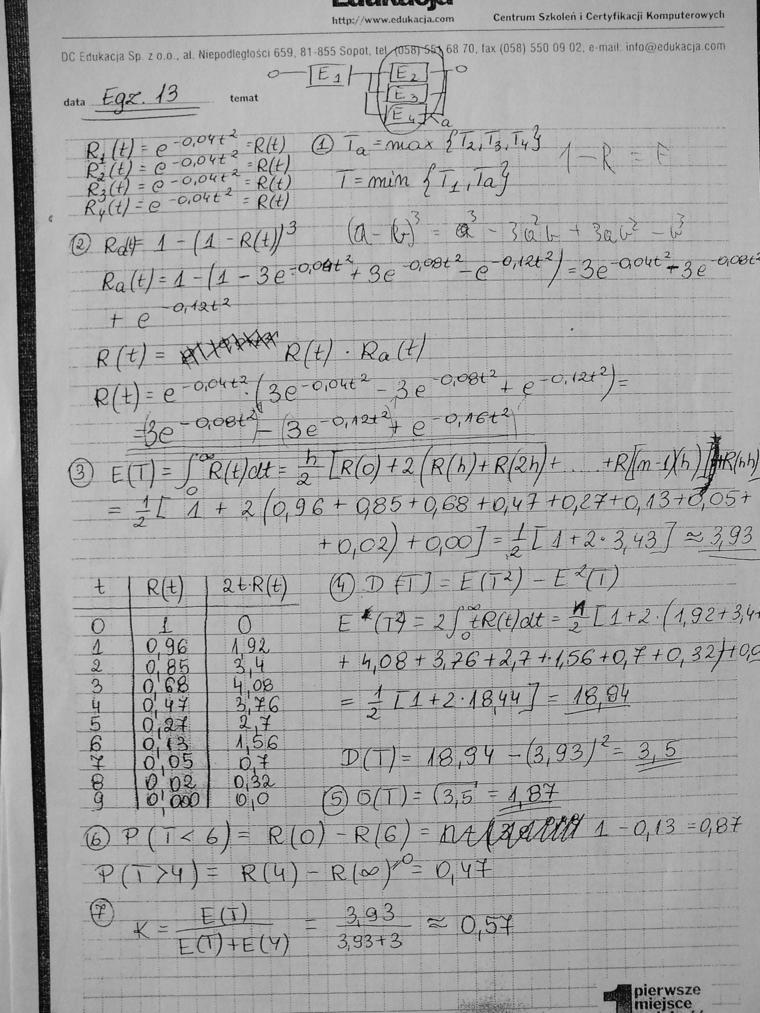 Edukacja
http://www.edukacja.com
Centrum Szkoleń i Certyfikacji Komputerowych
DC Edukacja Sp. z o.o., al. Niepodległości 659, 81-855 Sopot, tel. (058) 551 68 70, fax (058) 550 09 02, e-mail: info@edukacja.com
E₁ E₂
E₃
E₄ a
data Egz. 13 temat
R₁(t) = e^-0,04t² = R(t)
R₂(t) = e^-0,04t² = R(t)
R₃(t) = e^-0,04t² = R(t)
R₄(t) = e^-0,04t² = R(t)
① Ta = max {T₂, T₃, T₄}
1 - R = F
T = min {T₁, Ta}
② Ra(t) = 1 - (1 - R(t))³ (a - b)³ = a³ - 3a²b + 3ab² - b³
Ra(t) = 1 - (1 - 3e^-0,04t² + 3e^-0,08t² - e^-0,12t²) = 3e^-0,04t² - 3e^-0,08t²
+ e^-0,12t²
R(t) = R(t) · Ra(t)
R(t) = e^-0,04t² · (3e^-0,04t² - 3e^-0,08t² + e^-0,12t²) =
= (3e^-0,08t²) - (3e^-0,12t² + e^-0,16t²)
③ E(T) = ∫₀^∞ R(t)dt = h/2 [R(0) + 2(R(h) + R(2h) + ..... + R[(n-1)(h)] + R(nh)
= 1/2 [ 1 + 2 (0,96 + 0,85 + 0,68 + 0,47 + 0,27 + 0,13 + 0,05 +
+ 0,02) + 0,00] = 1/2 [1 + 2 · 3,43] ≈ 3,93
t | R(t) | 2t·R(t)
0 | 1 | 0
1 | 0,96 | 1,92
2 | 0,85 | 3,4
3 | 0,68 | 4,08
4 | 0,47 | 3,76
5 | 0,27 | 2,7
6 | 0,13 | 1,56
7 | 0,05 | 0,7
8 | 0,02 | 0,32
9 | 0,000 | 0,0
④ D[T] = E(T²) - E²(T)
E(T²) = 2∫₀^∞ tR(t)dt = h/2 [1 + 2·(1,92 + 3,4 +
+ 4,08 + 3,76 + 2,7 + 1,56 + 0,7 + 0,32) + 0,0
= 1/2 [1 + 2 · 18,44] = 18,94
D(T) = 18,94 - (3,93)² = 3,5
⑤ σ(T) = √3,5 = 1,87
⑥ P(T < 6) = R(0) - R(6) = 1 - 0,13 = 0,87
P(T > 4) = R(4) - R(∞)^0 = 0,47
⑦ K = E(T) / E(T) + E(Y) = 3,93 / 3,93 + 3 ≈ 0,57
1 pierwsze
miejsce